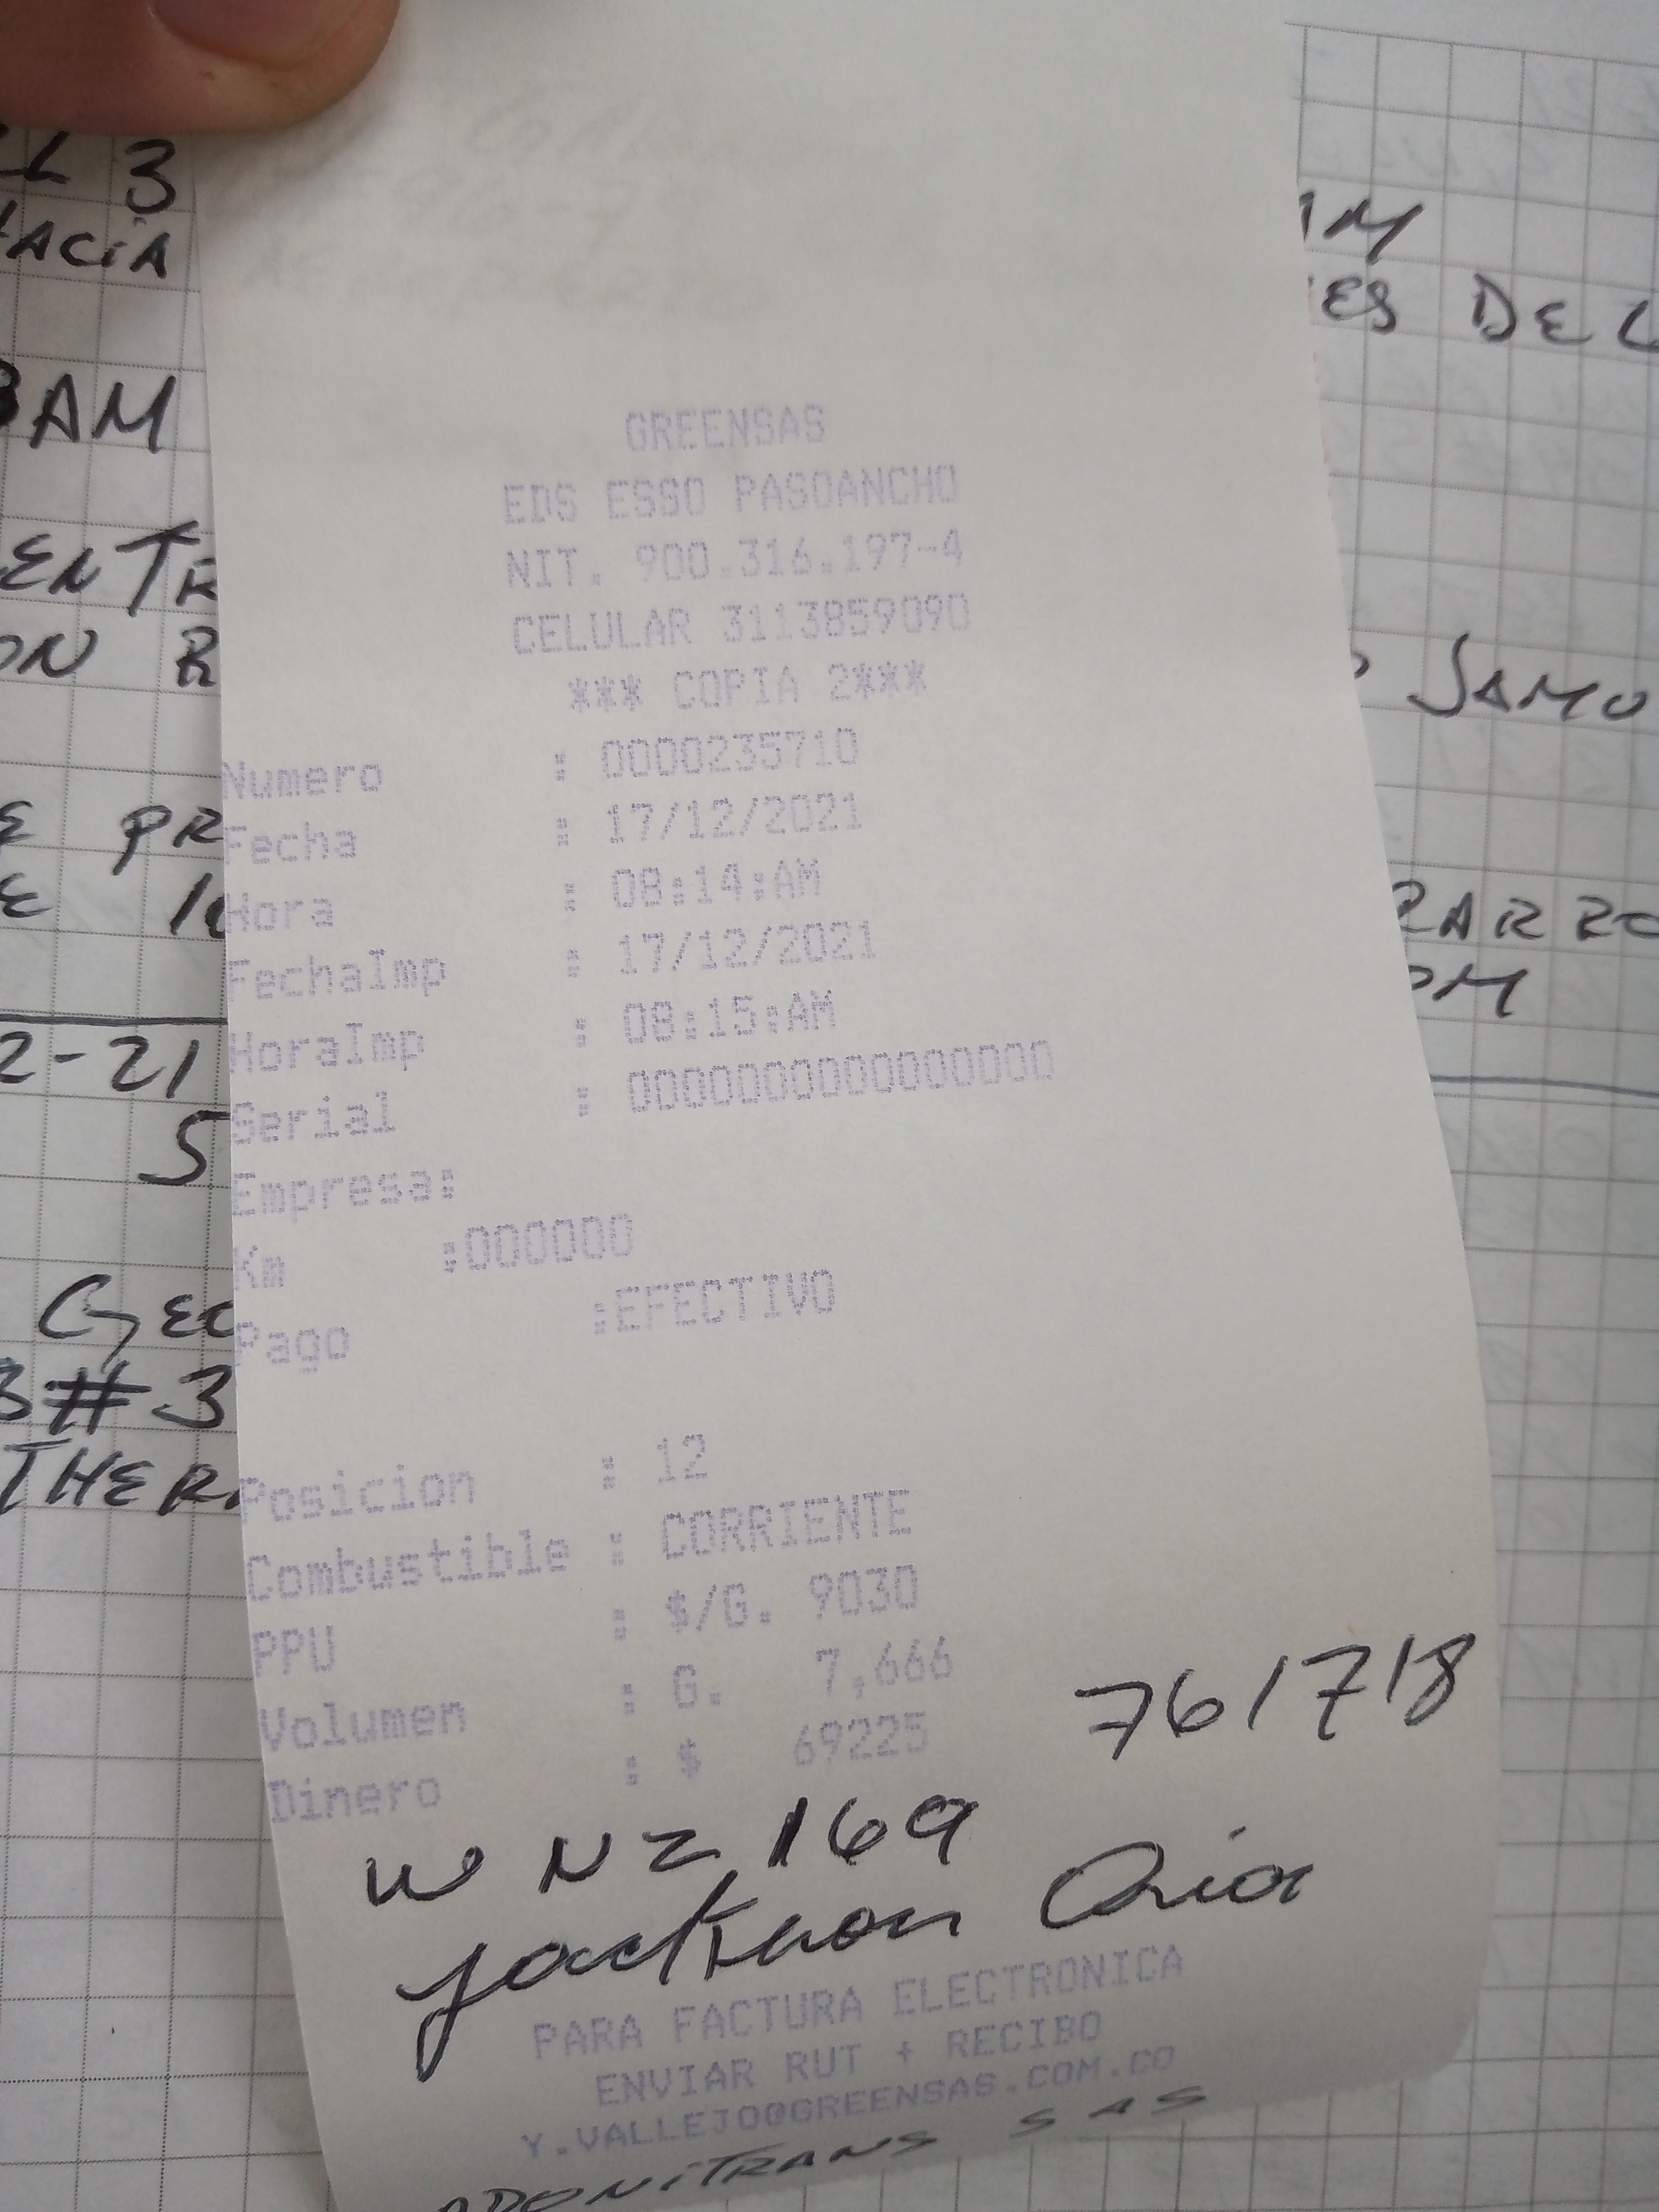 GREENSAS
EDS ESSO PASOANCHO
NIT. 900.316.197-4
CELULAR 3113859090
*** COPIA 2***
Numero : 0000235710
Fecha : 17/12/2021
Hora : 08:14:AM
FechaImp : 17/12/2021
HoraImp : 08:15:AM
Serial : 0000000000000000
Empresa:
Km :000000
Pago :EFECTIVO
Posicion : 12
Combustible : CORRIENTE
PPU : $/G. 9030
Volumen : G. 7,666
Dinero : $ 69225
761718
WNZ 169
PARA FACTURA ELECTRONICA
ENVIAR RUT + RECIBO
Y.VALLEJO@GREENSAS.COM.CO
SAS
3
ACIA
AM
DEL
2-21
5
# 3